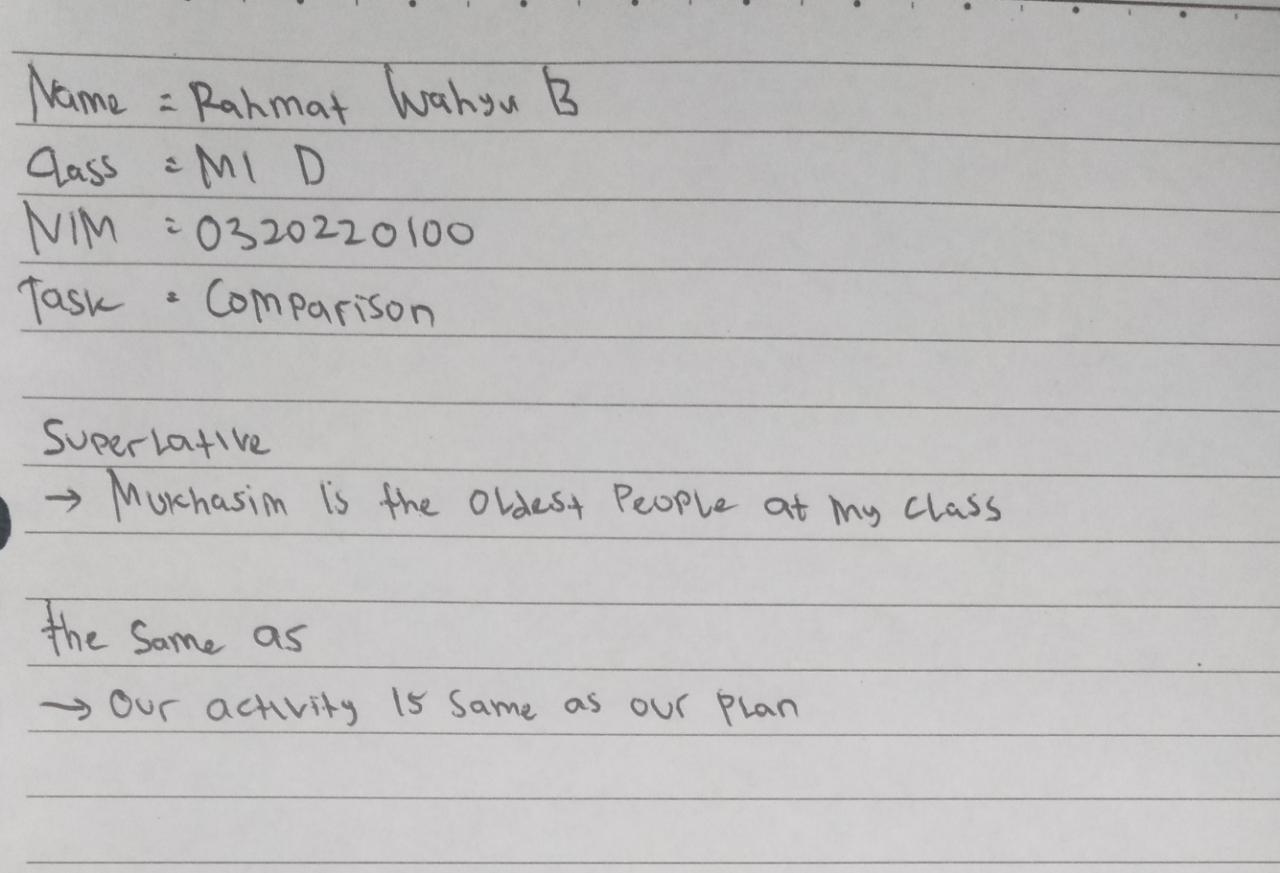 Name = Rahmat Wahyu B
Class = MI D
NIM = 0320220100
Task = Comparison
Superlative
→ Mukhasim is the oldest people at my class
the same as
→ Our activity is same as our plan